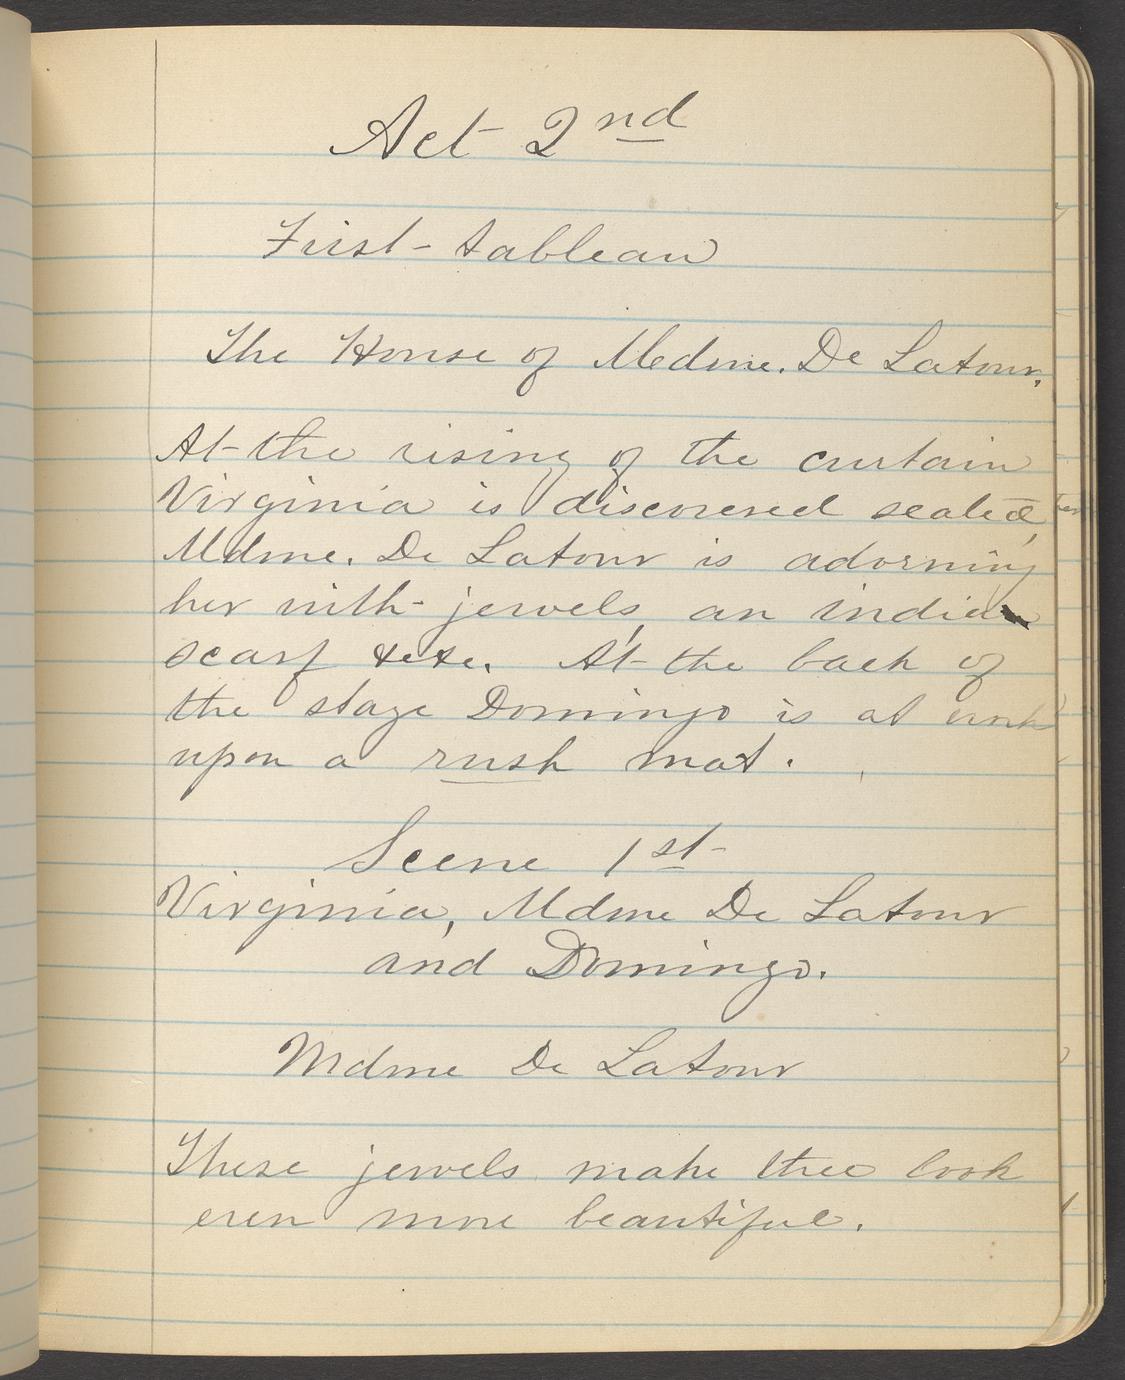 Act 2nd
First tableau
The House of Mdme. De Latour.
At the rising of the curtain
Virginia is discovered seated,
Mdme. De Latour is adorning
her with jewels, an india
scarf &c&c. At the back of
the stage Domingo is at work
upon a rush mat.
Scene 1st
Virginia, Mdme De Latour
and Domingo.
Mdme De Latour
These jewels make thee look
even more beautiful.